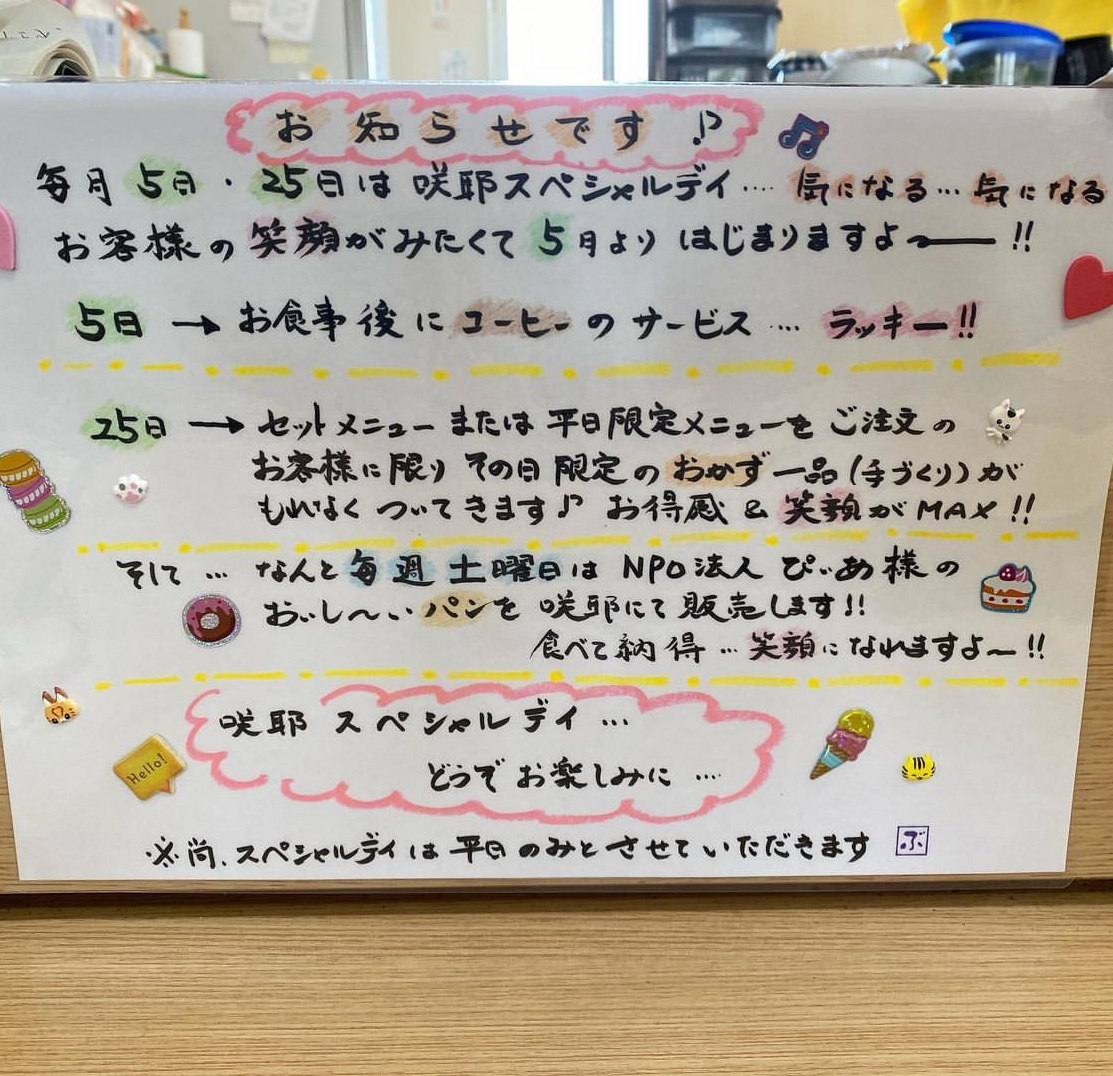 お知らせです♪
毎月5日・25日は咲耶スペシャルデイ‥‥気になる…気になる
お客様の笑顔がみたくて5日よりはじまりますよ〜――!!
5日→お食事後にコーヒーのサービス…ラッキー!!
25日→セットメニューまたは平日限定メニューをご注文の
お客様に限りその日限定のおかず一品(手づくり)が
もれなくついてきます♪お得感&笑顔がMAX!!
そして…なんと毎週土曜日はNPO法人ぴぃあ様の
おぃし〜ぃパンを咲耶にて販売します!!
食べて納得…笑顔になれますよ〜!!
咲耶スペシャルデイ…
どうぞお楽しみに‥‥
Hello!
※尚、スペシャルデイは平日のみとさせていただきます ぶ